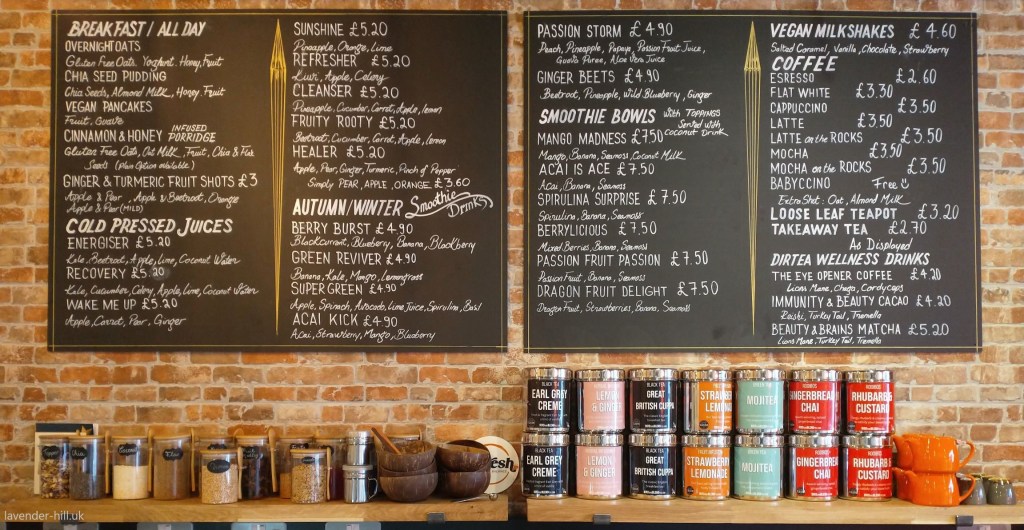 BREAKFAST / ALL DAY
OVERNIGHT OATS
Gluten Free Oats, Yogurt, Honey, Fruit
CHIA SEED PUDDING
Chia Seeds, Almond Milk, Honey, Fruit
VEGAN PANCAKES
Fruit, Guave
CINNAMON & HONEY INFUSED PORRIDGE
Gluten Free Oats, Oat Milk, Fruit, Chia & Flax
Seeds (Plain Option available)
GINGER & TURMERIC FRUIT SHOTS £3
Apple & Pear, Apple & Beetroot, Orange
Apple & Pear (MILD)
COLD PRESSED JUICES
ENERGISER £5.20
Kale, Beetroot, Apple, Lime, Coconut Water
RECOVERY £5.20
Kale, Cucumber, Celery, Apple, Lime, Coconut Water
WAKE ME UP £5.20
Apple, Carrot, Pear, Ginger
SUNSHINE £5.20
Pineapple, Orange, Lime
REFRESHER £5.20
Kiwi, Apple, Celery
CLEANSER £5.20
Pineapple, Cucumber, Carrot, Apple, Lemon
FRUITY ROOTY £5.20
Beetroot, Cucumber, Carrot, Apple, Lemon
HEALER £5.20
Apple, Pear, Ginger, Turmeric, Pinch of Pepper
Simply PEAR, APPLE, ORANGE £3.60
AUTUMN/WINTER Smoothie Drinks
BERRY BURST £4.90
Blackcurrant, Blueberry, Banana, Blackberry
GREEN REVIVER £4.90
Banana, Kale, Mango, Lemongrass
SUPER GREEN £4.90
Apple, Spinach, Avocado, Lime Juice, Spirulina, Basil
ACAI KICK £4.90
Acai, Strawberry, Mango, Blueberry
PASSION STORM £4.90
Peach, Pineapple, Papaya, Passion Fruit Juice,
Guava Puree, Aloe Vera Juice
GINGER BEETS £4.90
Beetroot, Pineapple, Wild Blueberry, Ginger
SMOOTHIE BOWLS with TOPPINGS
Served with
Coconut Drink
MANGO MADNESS £7.50
Mango, Banana, Seamoss, Coconut Milk
ACAI IS ACE £7.50
Acai, Banana, Seamoss
SPIRULINA SURPRISE £7.50
Spirulina, Banana, Seamoss
BERRYLICIOUS £7.50
Mixed Berries, Banana, Seamoss
PASSION FRUIT PASSION £7.50
Passion Fruit, Banana, Seamoss
DRAGON FRUIT DELIGHT £7.50
Dragon Fruit, Strawberries, Banana, Seamoss
VEGAN MILKSHAKES £4.60
Salted Caramel, Vanilla, Chocolate, Strawberry
COFFEE
ESPRESSO £2.60
FLAT WHITE £3.30
CAPPUCCINO £3.50
LATTE £3.50
LATTE on the ROCKS £3.50
MOCHA £3.50
MOCHA on the ROCKS £3.50
BABYCCINO Free
Extra Shot: Oat, Almond Milk
LOOSE LEAF TEAPOT £3.20
TAKEAWAY TEA £2.70
As Displayed
DIRTEA WELLNESS DRINKS
THE EYE OPENER COFFEE £4.20
Lions Mane, Chaga, Cordyceps
IMMUNITY & BEAUTY CACAO £4.20
Reishi, Turkey Tail, Tremella
BEAUTY & BRAINS MATCHA £5.20
Lions Mane, Turkey Tail, Tremella
BLACK TEA
EARL GREY
CREME
LEMON
& GINGER
BLACK TEA
GREAT
BRITISH CUPPA
STRAWBE
LEMONA
MOJITEA
ROOIBOS
GINGERBREAD
CHAI
ROOIBOS
RHUBARB &
CUSTARD
BLACK TEA
EARL GREY
CREME
LEMON
& GINGER
BLACK TEA
GREAT
BRITISH CUPPA
STRAWBERRY
LEMONADE
MOJITEA
GINGERBR
CHAI
RHUBARB
CUSTARD
Chia
Coconut
esh
lavender-hill.uk